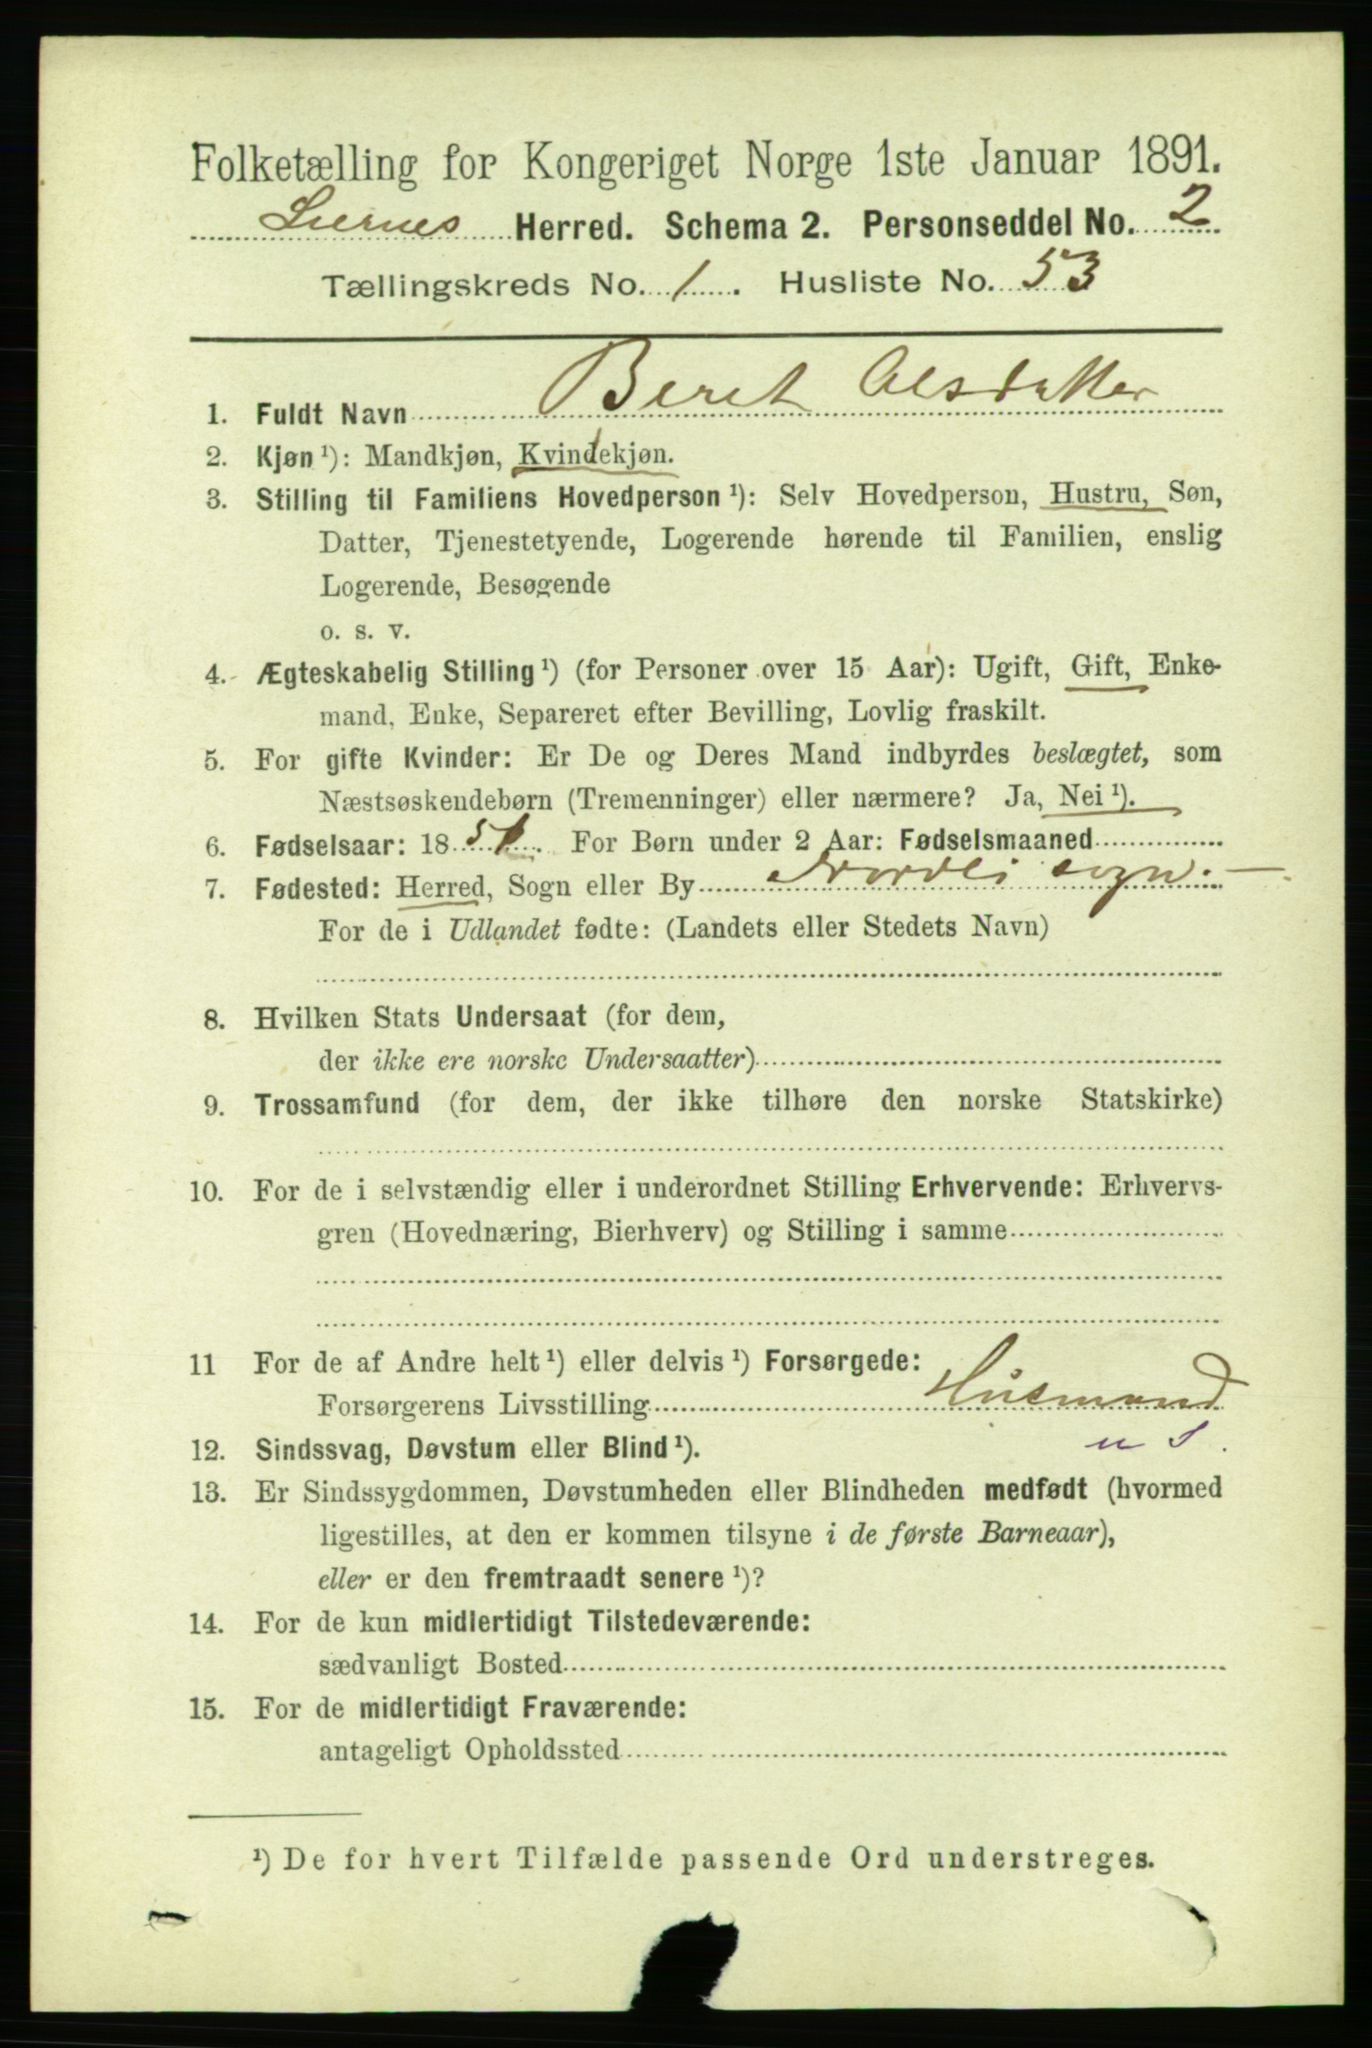 Folketælling for Kongeriget Norge 1ste Januar 1891.
Liernes Herred. Schema 2. Personseddel No. 2
Tællingskreds No. 1. Husliste No. 53
1. Fuldt Navn Beret Olsdatter
2. Kjøn ¹): Mandkjøn, Kvindekjøn.
3. Stilling til Familiens Hovedperson ¹): Selv Hovedperson, Hustru, Søn,
Datter, Tjenestetyende, Logerende hørende til Familien, enslig
Logerende, Besøgende
o. s. v.
4. Ægteskabelig Stilling ¹) (for Personer over 15 Aar): Ugift, Gift, Enke-
mand, Enke, Separeret efter Bevilling, Lovlig fraskilt.
5. For gifte Kvinder: Er De og Deres Mand indbyrdes beslægtet, som
Næstsøskendebørn (Tremenninger) eller nærmere? Ja, Nei ¹).
6. Fødselsaar: 18 For Børn under 2 Aar: Fødselsmaaned
7. Fødested: Herred, Sogn eller By Nordli sogn.
For de i Udlandet fødte: (Landets eller Stedets Navn)
8. Hvilken Stats Undersaat (for dem,
der ikke ere norske Undersaatter)
9. Trossamfund (for dem, der ikke tilhøre den norske Statskirke)
10. For de i selvstændig eller i underordnet Stilling Erhvervende: Erhvervs-
gren (Hovednæring, Bierhverv) og Stilling i samme
11 For de af Andre helt ¹) eller delvis ¹) Forsørgede:
Forsørgerens Livsstilling Husmand
12. Sindssvag, Døvstum eller Blind ¹).
13. Er Sindssygdommen, Døvstumheden eller Blindheden medfødt (hvormed
ligestilles, at den er kommen tilsyne i de første Barneaar),
eller er den fremtraadt senere ¹)?
14. For de kun midlertidigt Tilstedeværende:
sædvanligt Bosted
15. For de midlertidigt Fraværende:
antageligt Opholdssted
¹) De for hvert Tilfælde passende Ord understreges.